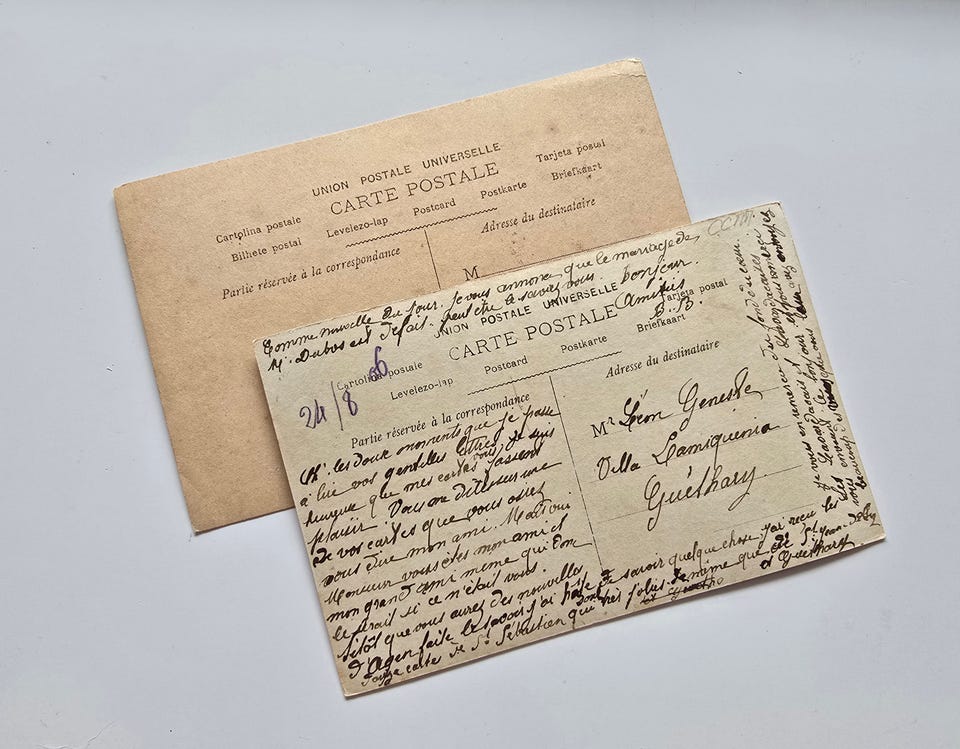 UNION POSTALE UNIVERSELLE
CARTE POSTALE
Cartolina postale Levelezo-lap Postcard Postkarte Tarjeta postal
Bilhete postal Briefkaart
Partie réservée à la correspondance
Adresse du destinataire
M
CCM
Comme nouvelle du jour. Je vous annonce que le mariage de
Mr. Dubos est défait. peut être le savez vous. bonjour.
Amitiés
B. B.
UNION POSTALE UNIVERSELLE
CARTE POSTALE
Cartolina postale Postcard Postkarte Tarjeta postal
Levelezo-lap Briefkaart
24/8 06
Partie réservée à la correspondance
Adresse du destinataire
Mr Léon Geneste
Villa Lamiquenia
Guéthary
Oh! les doux moments que je passe
à lire vos gentilles lettres, je suis
heureuse que mes cartes vous fassent
plaisir. Vous me dites sur une
de vos cartes que vous osiez
vous dire mon ami. Mais oui
Monsieur vous êtes mon ami et
mon grand ami même qui donc
le serait si ce n'était vous.
Sitôt que vous aurez des nouvelles
d'Agen faite le savoir j'ai hâte de savoir quelque chose. j'ai reçu les
carte de St Sébastien qui sont très jolies. de même que de St Jean-de-Luz
et Guéthary
Je vous en remercie du fond du cœur.